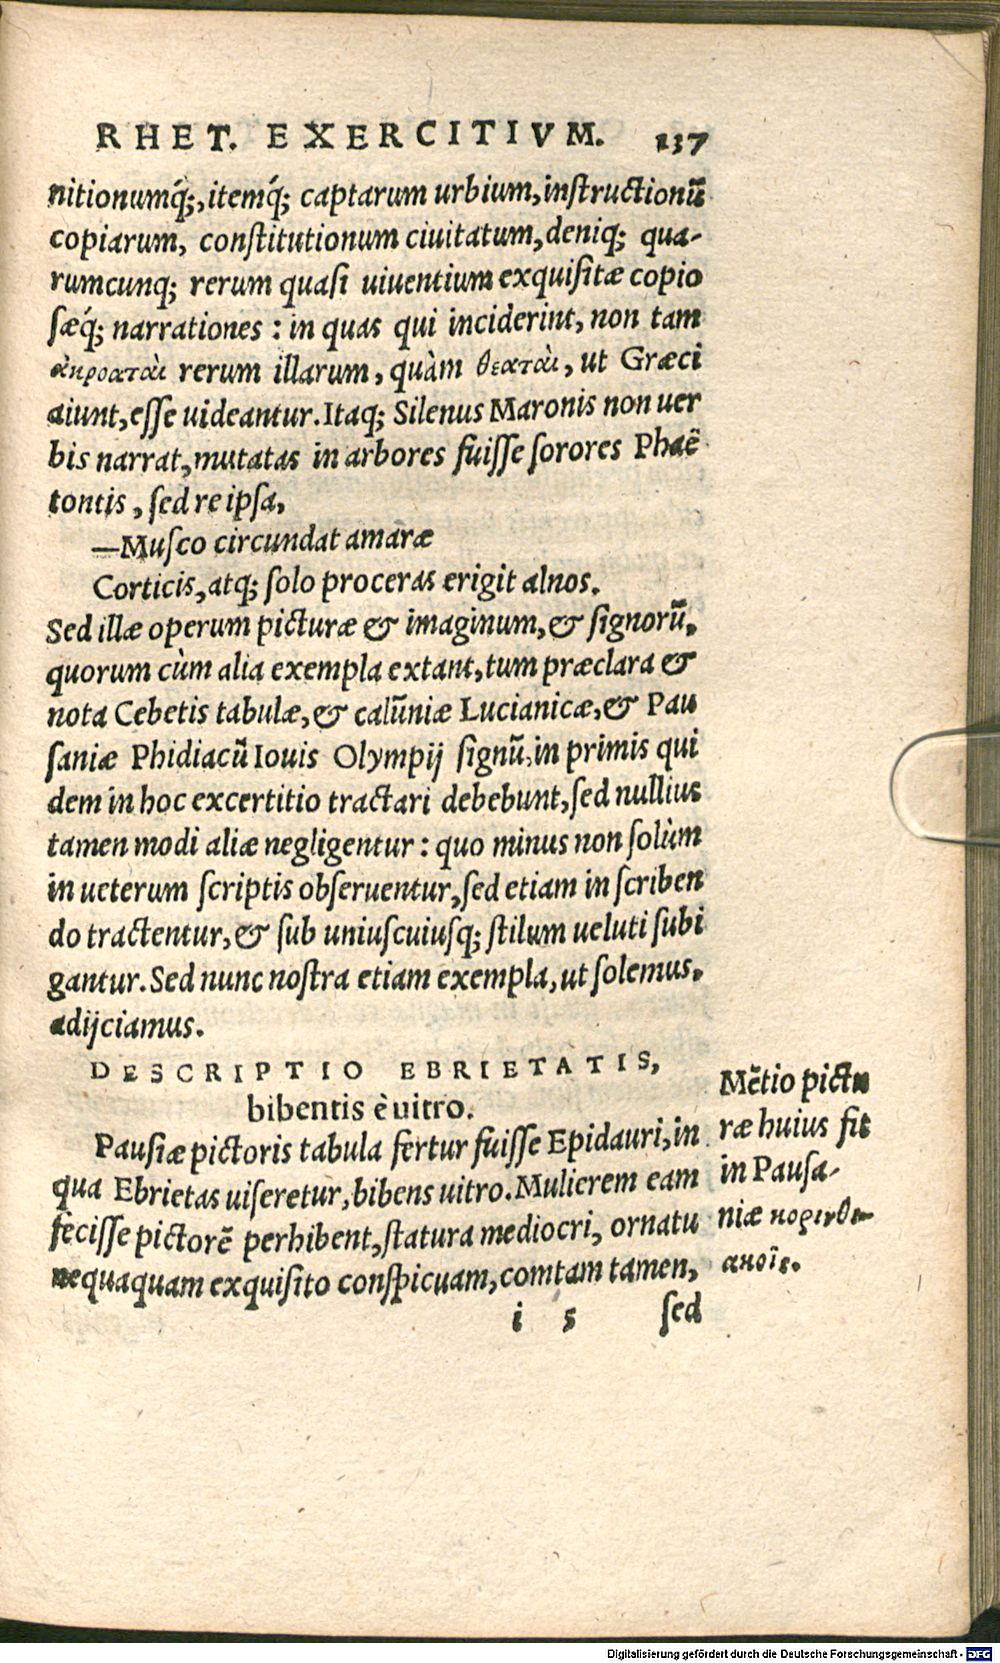 RHET. EXERCITIVM. 137
nitionumq́;, itemq́; captarum urbium, instructionū
copiarum, constitutionum ciuitatum, deniq; qua-
rumcunq; rerum quasi uiuentium exquisitæ copio
sæq́; narrationes : in quas qui inciderint, non tam
ἀκροαταὶ rerum illarum, quàm θεαταὶ, ut Græci
aiunt, esse uideantur. Itaq; Silenus Maronis non uer
bis narrat, mutatas in arbores fuisse sorores Phaë
tontis, sed re ipsa,
—Musco circundat amaræ
Corticis, atq; solo proceras erigit alnos.
Sed illæ operum picturæ & imaginum, & signorū,
quorum cùm alia exempla extant, tum præclara &
nota Cebetis tabulæ, & calūniæ Lucianicæ, & Pau
saniæ Phidiacū Iouis Olympij signū, in primis qui
dem in hoc excertitio tractari debebunt, sed nullius
tamen modi aliæ negligentur : quo minus non solùm
in ueterum scriptis obseruentur, sed etiam in scriben
do tractentur, & sub uniuscuiusq; stilum ueluti subi
gantur. Sed nunc nostra etiam exempla, ut solemus,
adijciamus.
DESCRIPTIO EBRIETATIS,
bibentis è uitro.
Pausiæ pictoris tabula fertur fuisse Epidauri, in
qua Ebrietas uiseretur, bibens uitro. Mulierem eam
fecisse pictorē perhibent, statura mediocri, ornatu
nequaquam exquisito conspicuam, comtam tamen,
i 5 sed
Mētio pictu
ræ huius fit
in Pausa-
niæ κορινθι-
ακοῖς.
Digitalisierung gefördert durch die Deutsche Forschungsgemeinschaft - DFG